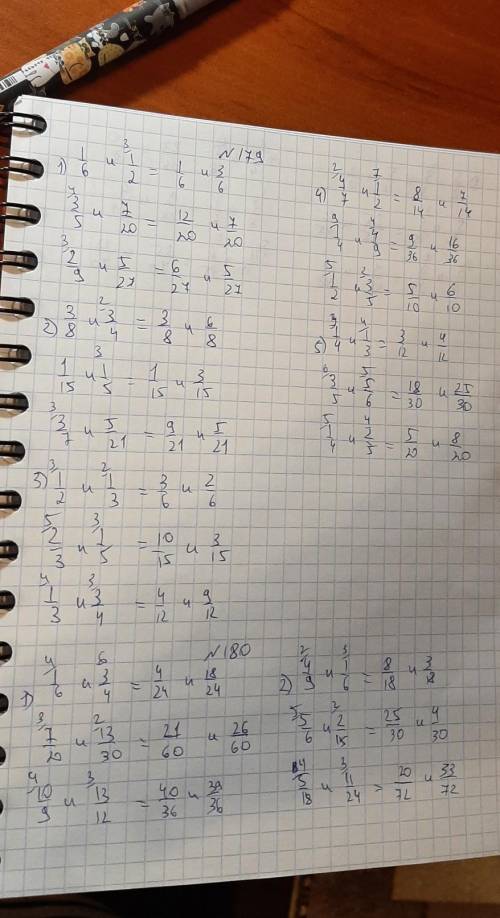 N179
1) 3/ 1/6 и 1/2 = 1/6 и 3/6
4/ 3/5 и 7/20 = 12/20 и 7/20
3/ 2/9 и 5/27 = 6/27 и 5/27
2) 3/8 и 2/ 3/4 = 3/8 и 6/8
1/15 и 3/ 1/5 = 1/15 и 3/15
3/ 3/7 и 5/21 = 9/21 и 5/21
3) 3/ 1/2 и 2/ 1/3 = 3/6 и 2/6
5/ 2/3 и 3/ 1/5 = 10/15 и 3/15
4/ 1/3 и 3/ 3/4 = 4/12 и 9/12
4) 2/ 4/7 и 7/ 1/2 = 8/14 и 7/14
9/ 1/4 и 4/ 4/9 = 9/36 и 16/36
5/ 1/2 и 2/ 3/5 = 5/10 и 6/10
5) 3/ 1/4 и 4/ 1/3 = 3/12 и 4/12
6/ 3/5 и 5/ 5/6 = 18/30 и 25/30
5/ 1/4 и 4/ 2/5 = 5/20 и 8/20
N180
1) 4/ 1/6 и 6/ 3/4 = 4/24 и 18/24
3/ 7/20 и 2/ 13/30 = 21/60 и 26/60
4/ 10/9 и 3/ 13/12 = 40/36 и 39/36
2) 2/ 4/9 и 3/ 1/6 = 8/18 и 3/18
5/ 5/6 и 2/ 2/15 = 25/30 и 4/30
4/ 5/18 и 3/ 11/24 = 20/72 и 33/72